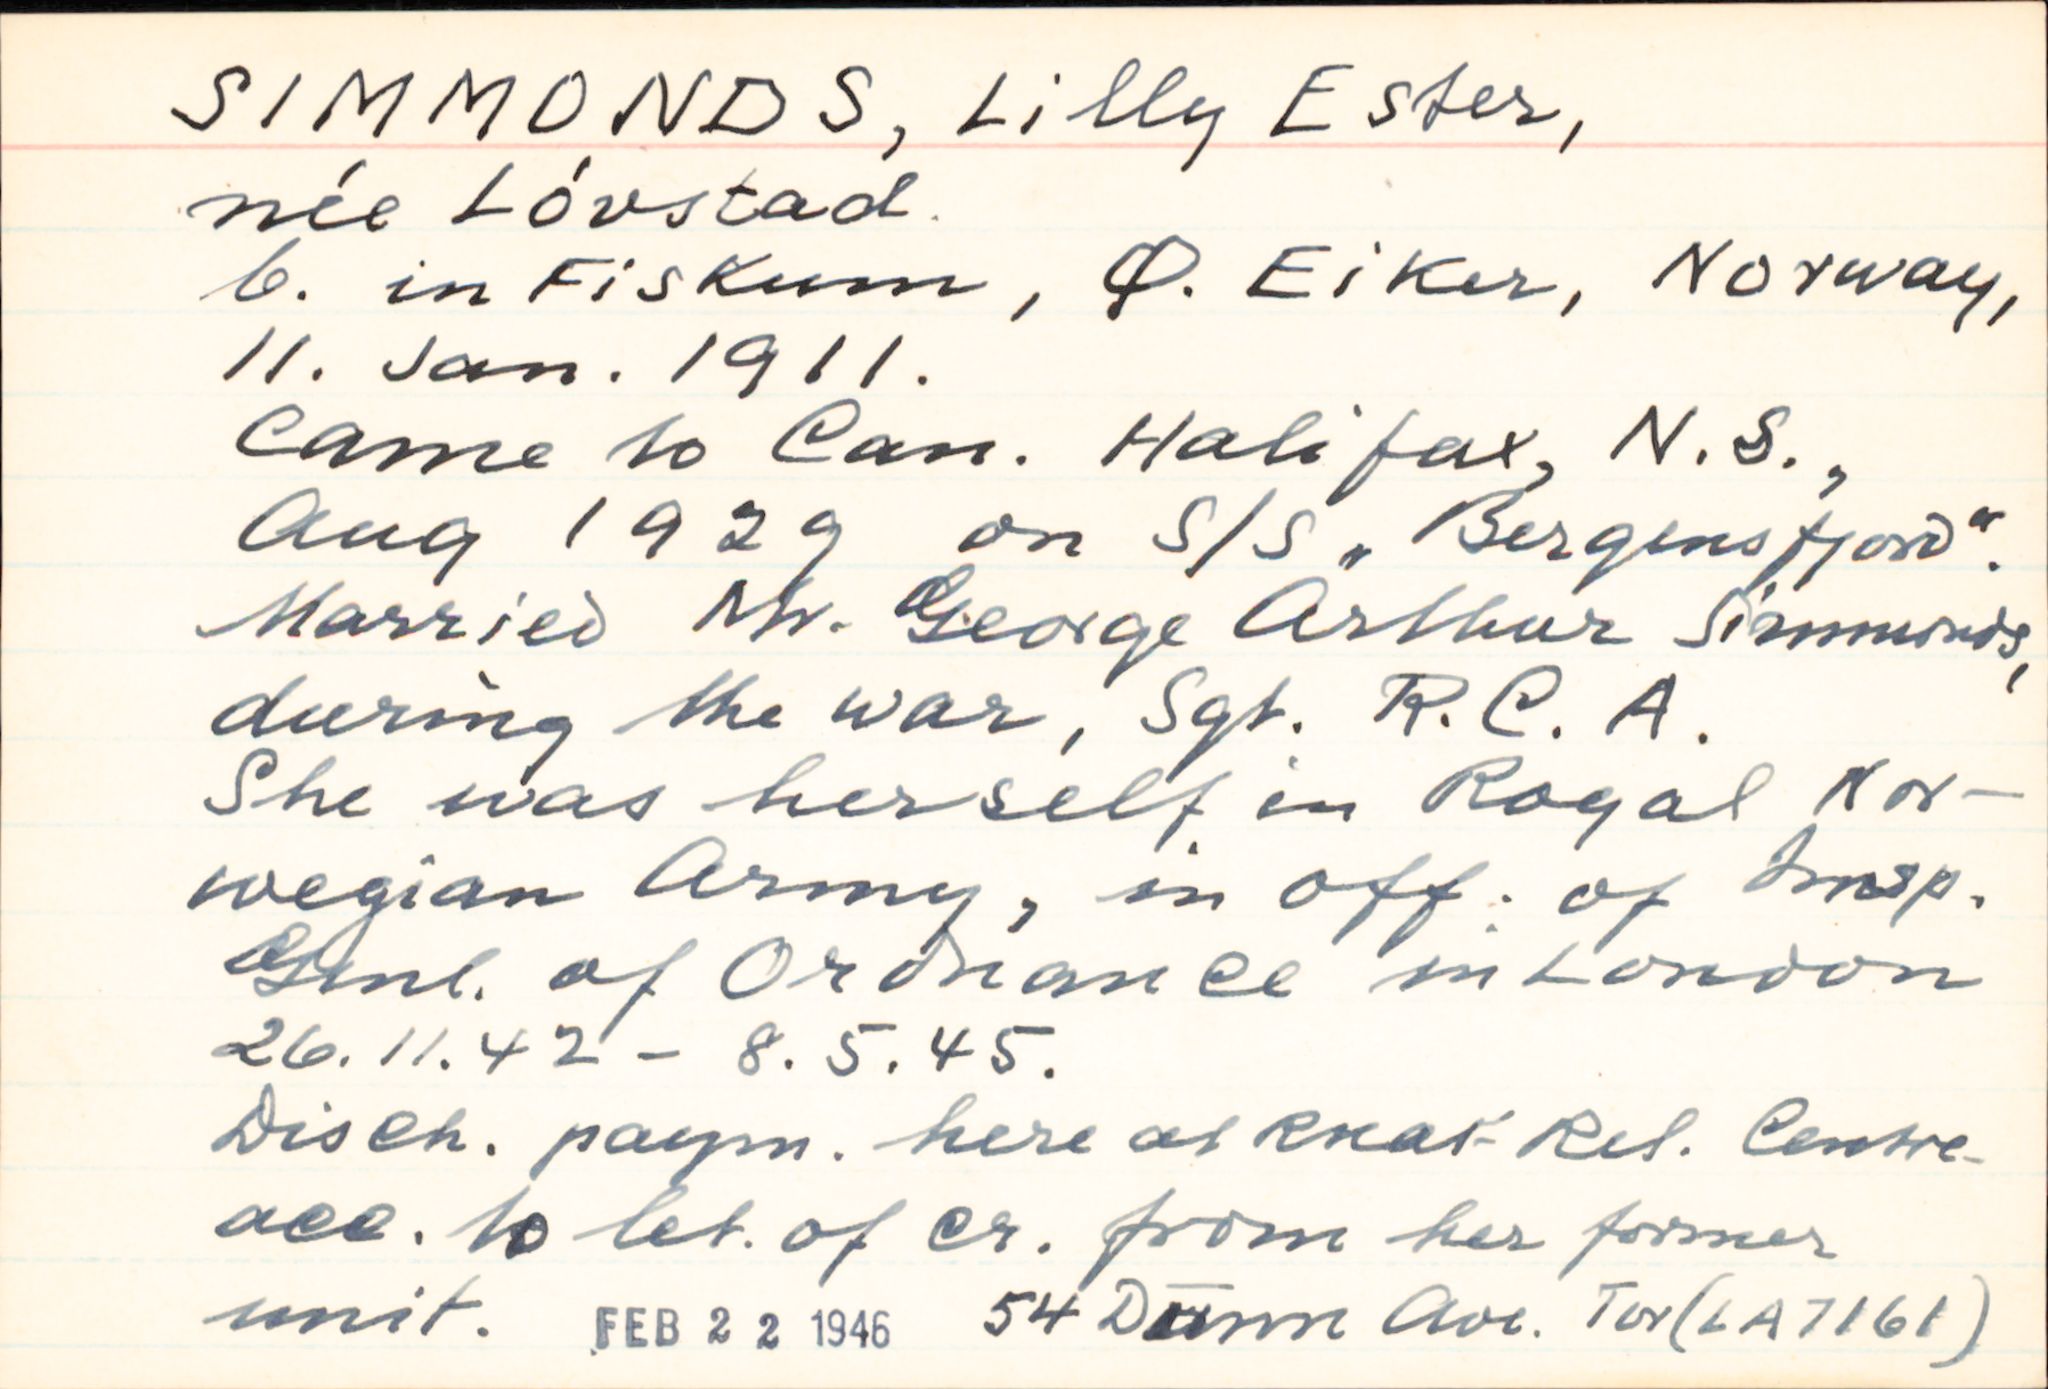 SIMMONDS, Lilly Ester,
née Lóvstad.
b. in Fiskum, Ø. Eiker, Norway,
11. Jan. 1911.
Came to Can. Halifax, N.S.,
Aug 1929 on S/S „Bergensfjord".
Married Mr. George Arthur Simmonds,
during the war, Sgt. R.C.A.
She was herself in Royal Nor-
wegian Army, in off. of Insp.
Genl. of Ordnance in London
26.11.42 - 8.5.45.
Disch. paym. here at Rel. Centre
acc. to let. of cr. from her former
unit. FEB 22 1946 54 Dunn Ave. Tor (LA7161)